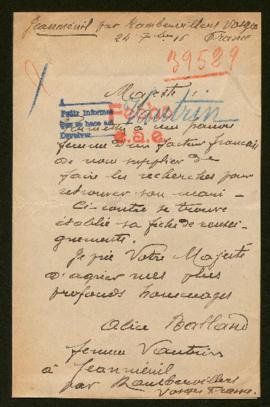 Jeanménil par Rambervillers Vosges
24 7bre 15 France
39529
Majesté
Vautrin
Permettez à une pauvre
femme d'un facteur français
de vous supplier de
faire les recherches pour
retrouver son mari -
Ci-contre se trouve
établie sa fiche de rensei-
gnements.
Je prie Votre Majesté
d'agréer mes plus
profonds hommages
Alice
femme Vautrin
à Jeanménil
par Rambervillers
Vosges France.